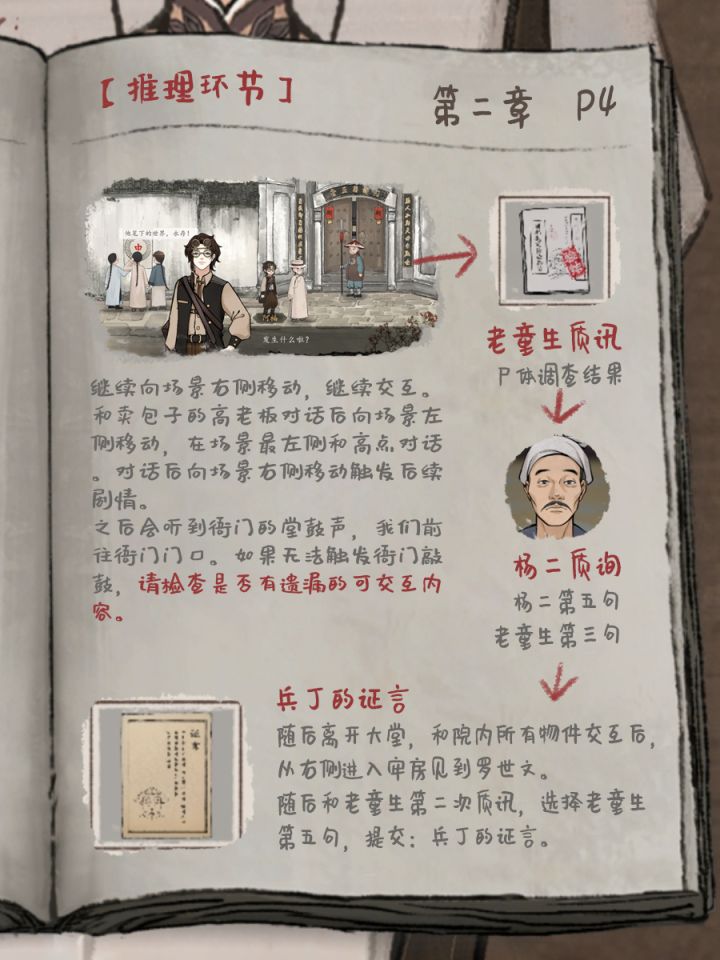 【推理环节】
第二章 P4
他笔下的世界，永存！
发生什么啦？
老童生质讯
尸体调查结果
继续向场景右侧移动，继续交互。
和卖包子的高老板对话后向场景左
侧移动，在场景最左侧和高点对话
。对话后向场景右侧移动触发后续
剧情。
之后会听到衙门的堂鼓声，我们前
往衙门门口。如果无法触发衙门敲
鼓，请检查是否有遗漏的可交互内
容。
杨二质询
杨二第五句
老童生第三句
兵丁的证言
随后离开大堂，和院内所有物件交互后，
从右侧进入牢房见到罗世文。
随后和老童生第二次质讯，选择老童生
第五句，提交：兵丁的证言。
证言